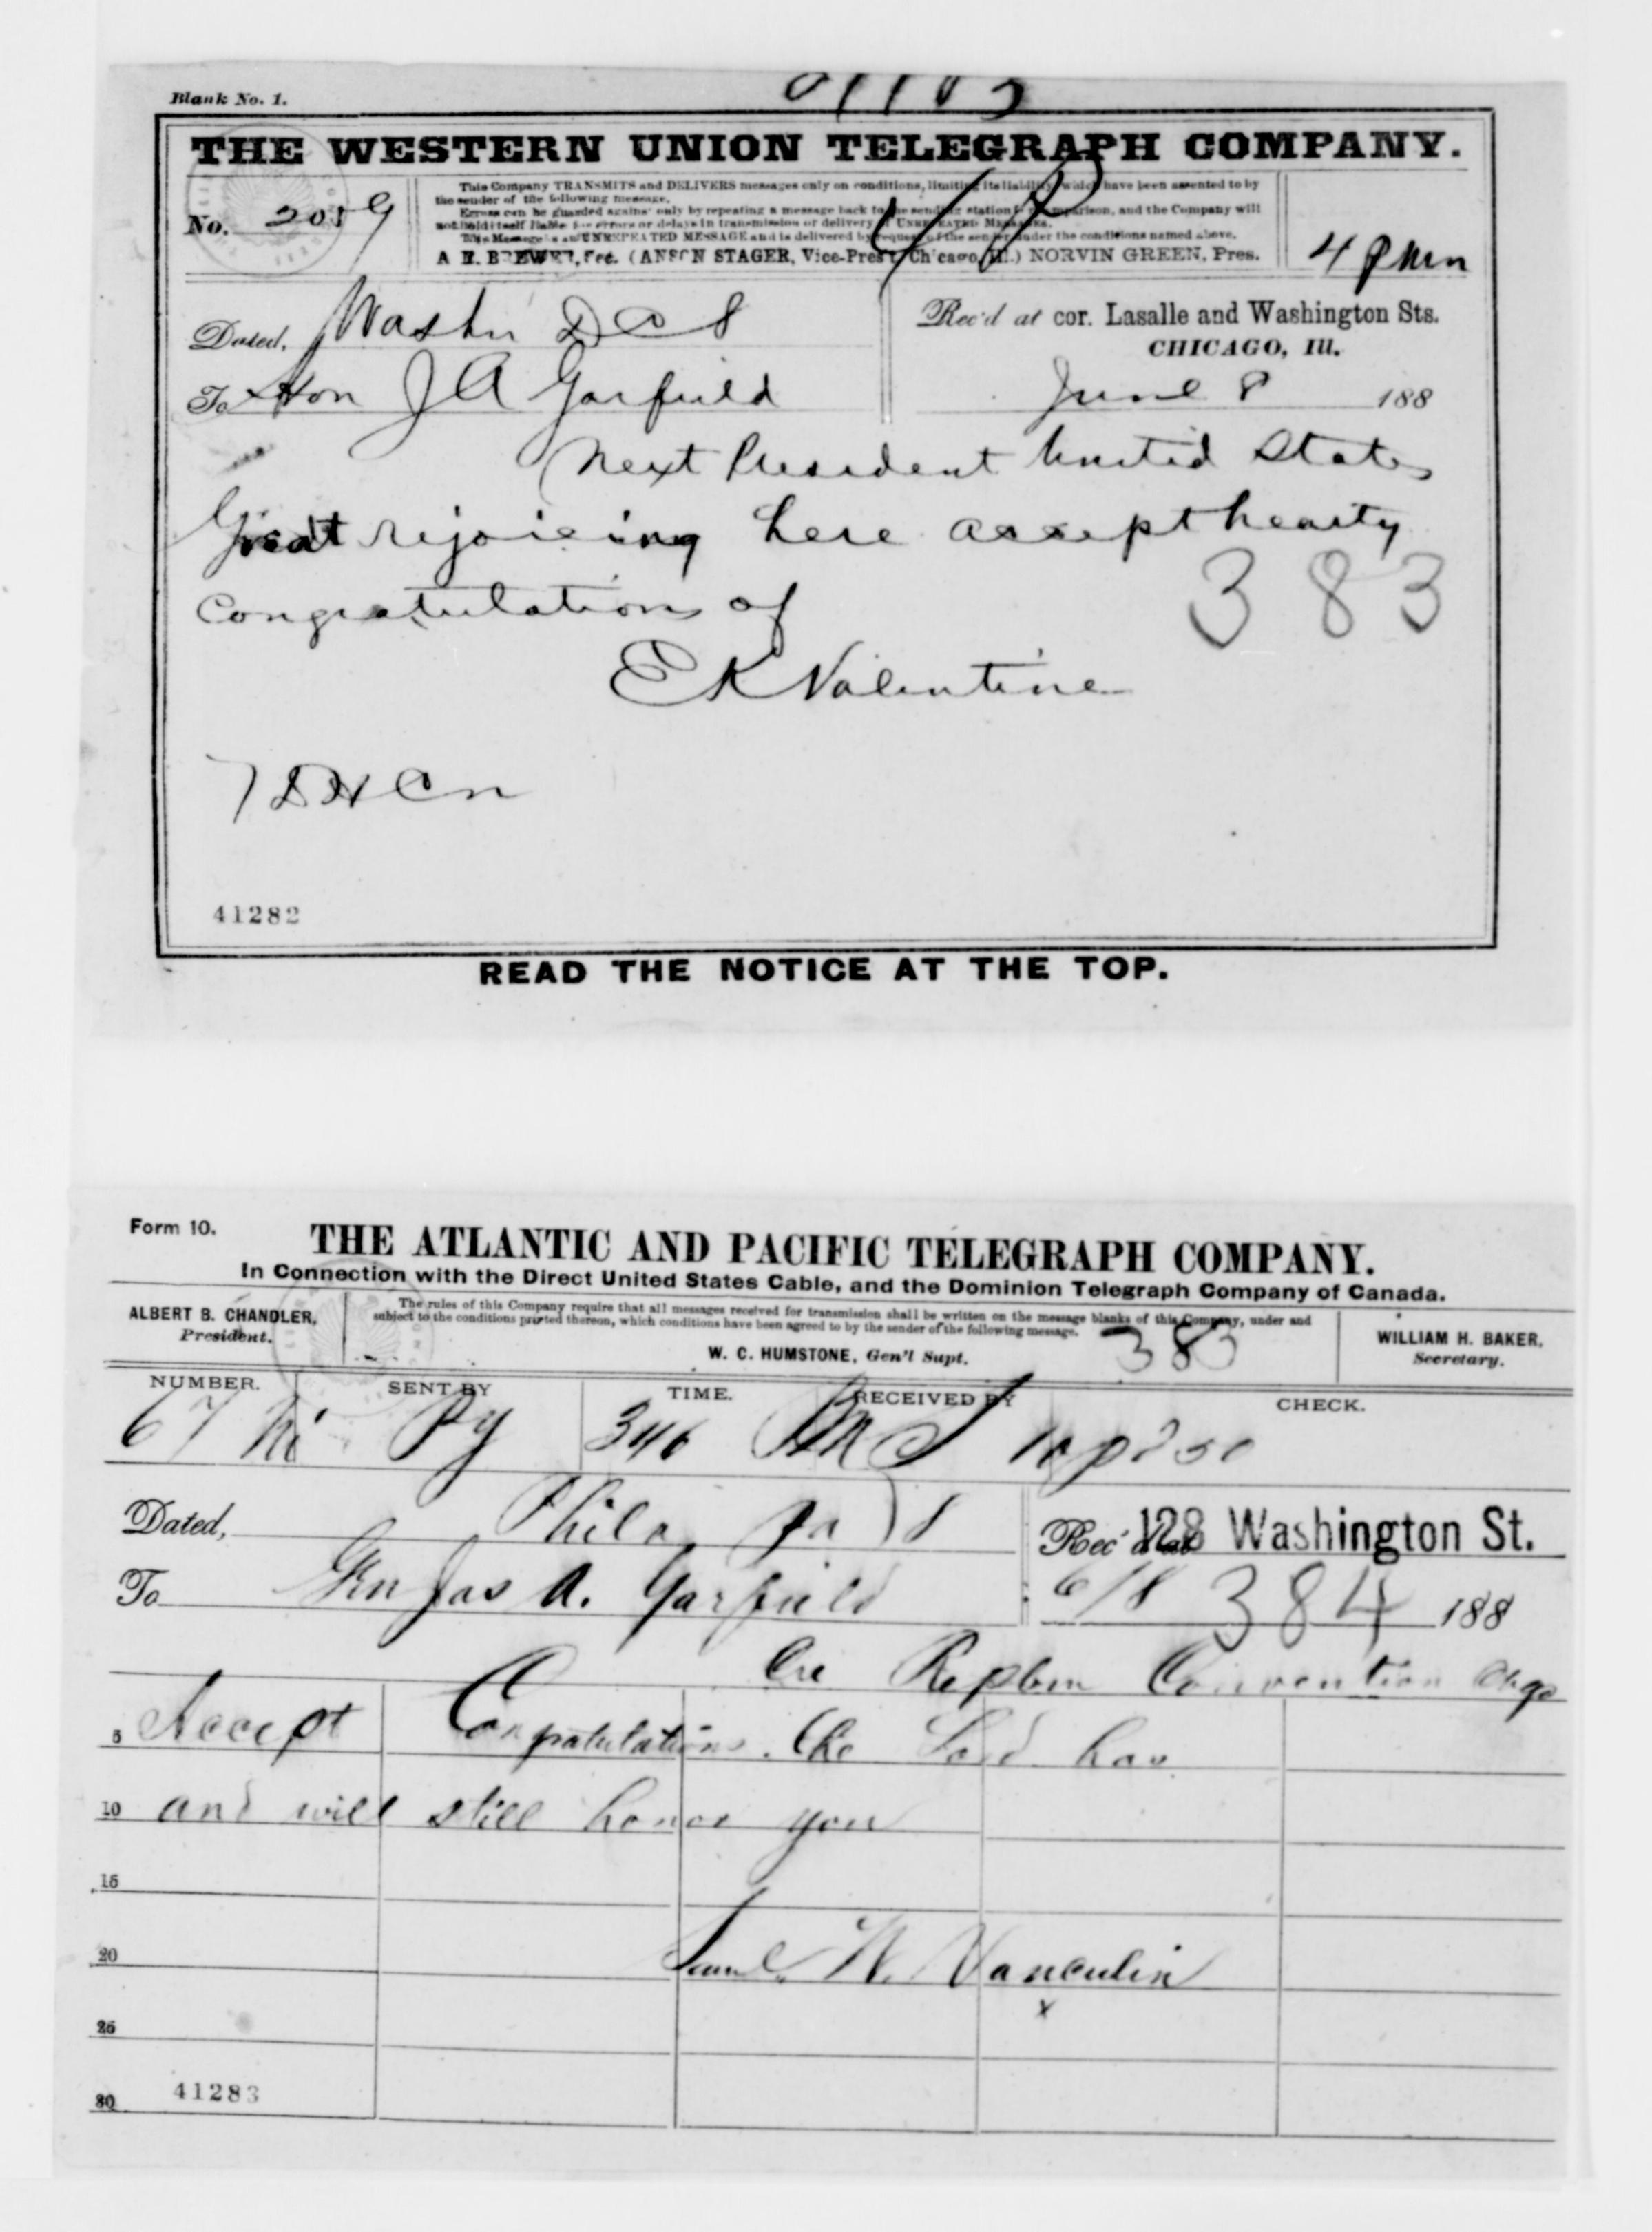 Blank No. 1.
THE WESTERN UNION TELEGRAPH COMPANY.
This Company TRANSMITS and DELIVERS messages only on conditions, limiting its liability, which have been assented to by
the sender of the following message.
Errors can be guarded against only by repeating a message back to the sending station for comparison, and the Company will
not hold itself liable for errors or delays in transmission or delivery of UNREPEATED MESSAGES.
This Message is an UNREPEATED MESSAGE and is delivered by request of the sender under the conditions named above.
A. R. BREWER, Sec. (ANSON STAGER, Vice-Pres't, Chicago, Ill.) NORVIN GREEN, Pres.
No. 2059
4 P
Dated, Washn D C 8
Rec'd at cor. Lasalle and Washington Sts.
CHICAGO, Ill.
To Hon J A Garfield
June 8 188
Next President United States
Great rejoicing here accept hearty
Congratulations of
383
E K Valentine
7 DH Cn
41282
READ THE NOTICE AT THE TOP.
Form 10.
THE ATLANTIC AND PACIFIC TELEGRAPH COMPANY.
In Connection with the Direct United States Cable, and the Dominion Telegraph Company of Canada.
ALBERT B. CHANDLER, President.
The rules of this Company require that all messages received for transmission shall be written on the message blanks of this Company, under and
subject to the conditions printed thereon, which conditions have been agreed to by the sender of the following message.
W. C. HUMSTONE, Gen'l Supt.
383
WILLIAM H. BAKER, Secretary.
NUMBER. SENT BY TIME. RECEIVED BY CHECK.
67 Py 346
Dated, Phila Pa 8
Rec'd at 128 Washington St.
To Gen Jas A. Garfield
6/8 384 188
Repbn Convention Chgo
5 Accept Congratulations. The Lord has
10 and will still honor you
15
20 Saml. W. Vanculin
x
25
41283
30